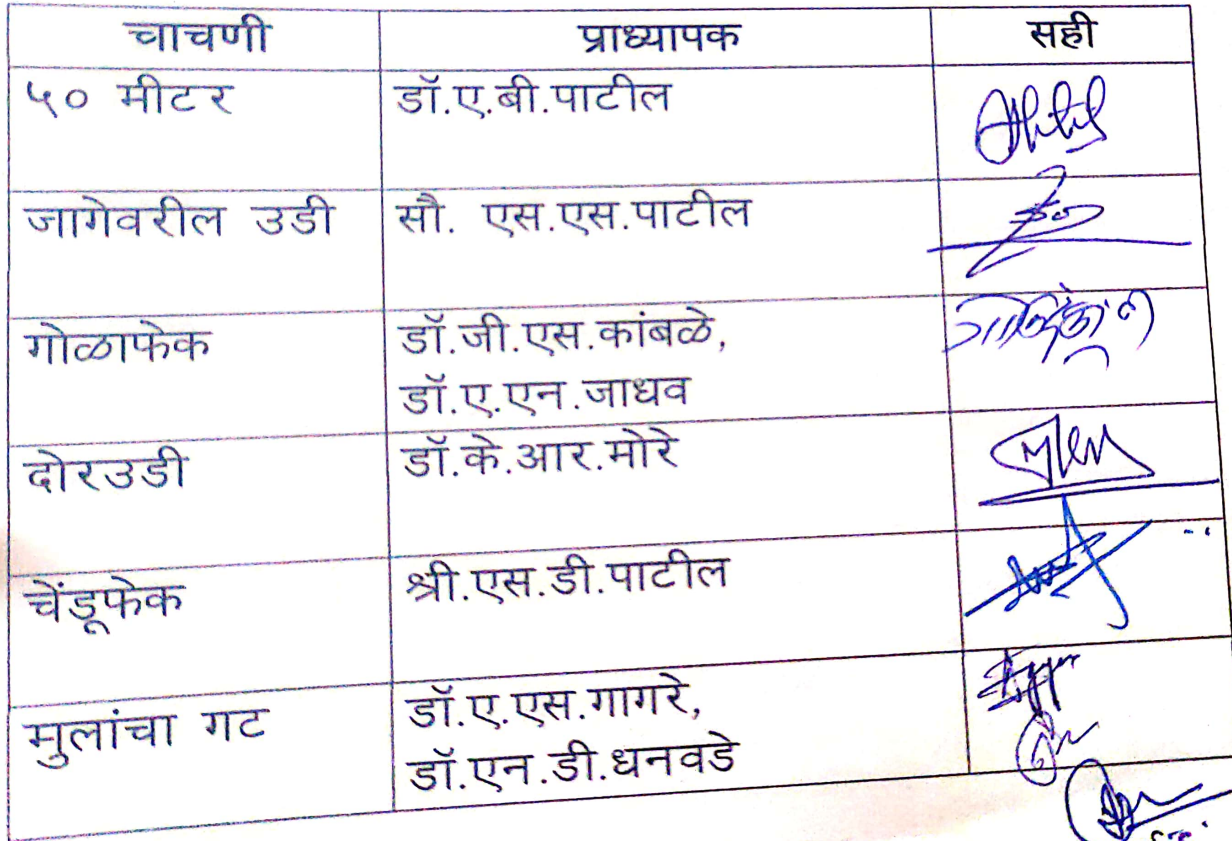 चाचणी प्राध्यापक सही
५० मीटर डॉ.ए.बी.पाटील
जागेवरील उडी सौ. एस.एस.पाटील
गोळाफेक डॉ.जी.एस.कांबळे,
डॉ.ए.एन.जाधव
दोरउडी डॉ.के.आर.मोरे
चेंडूफेक श्री.एस.डी.पाटील
मुलांचा गट डॉ.ए.एस.गागरे,
डॉ.एन.डी.धनवडे